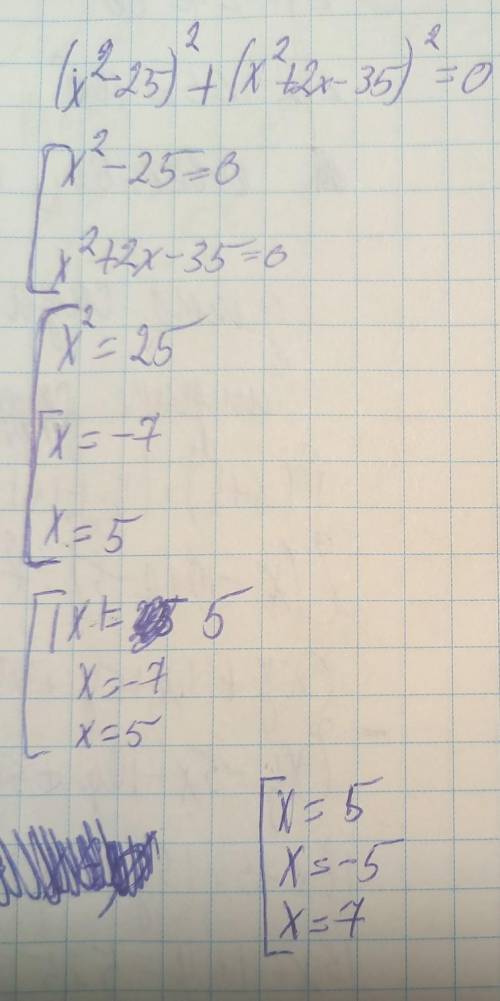 (x²-25)²+(x²+2x-35)²=0
[x²-25=0
x²+2x-35=0
[x²=25
[x=-7
x=5
[|x|=5
x=-7
x=5
[x=5
x=-5
x=7